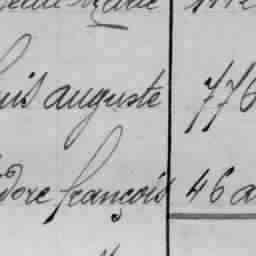 uis auguste 776
dore françois 46 a